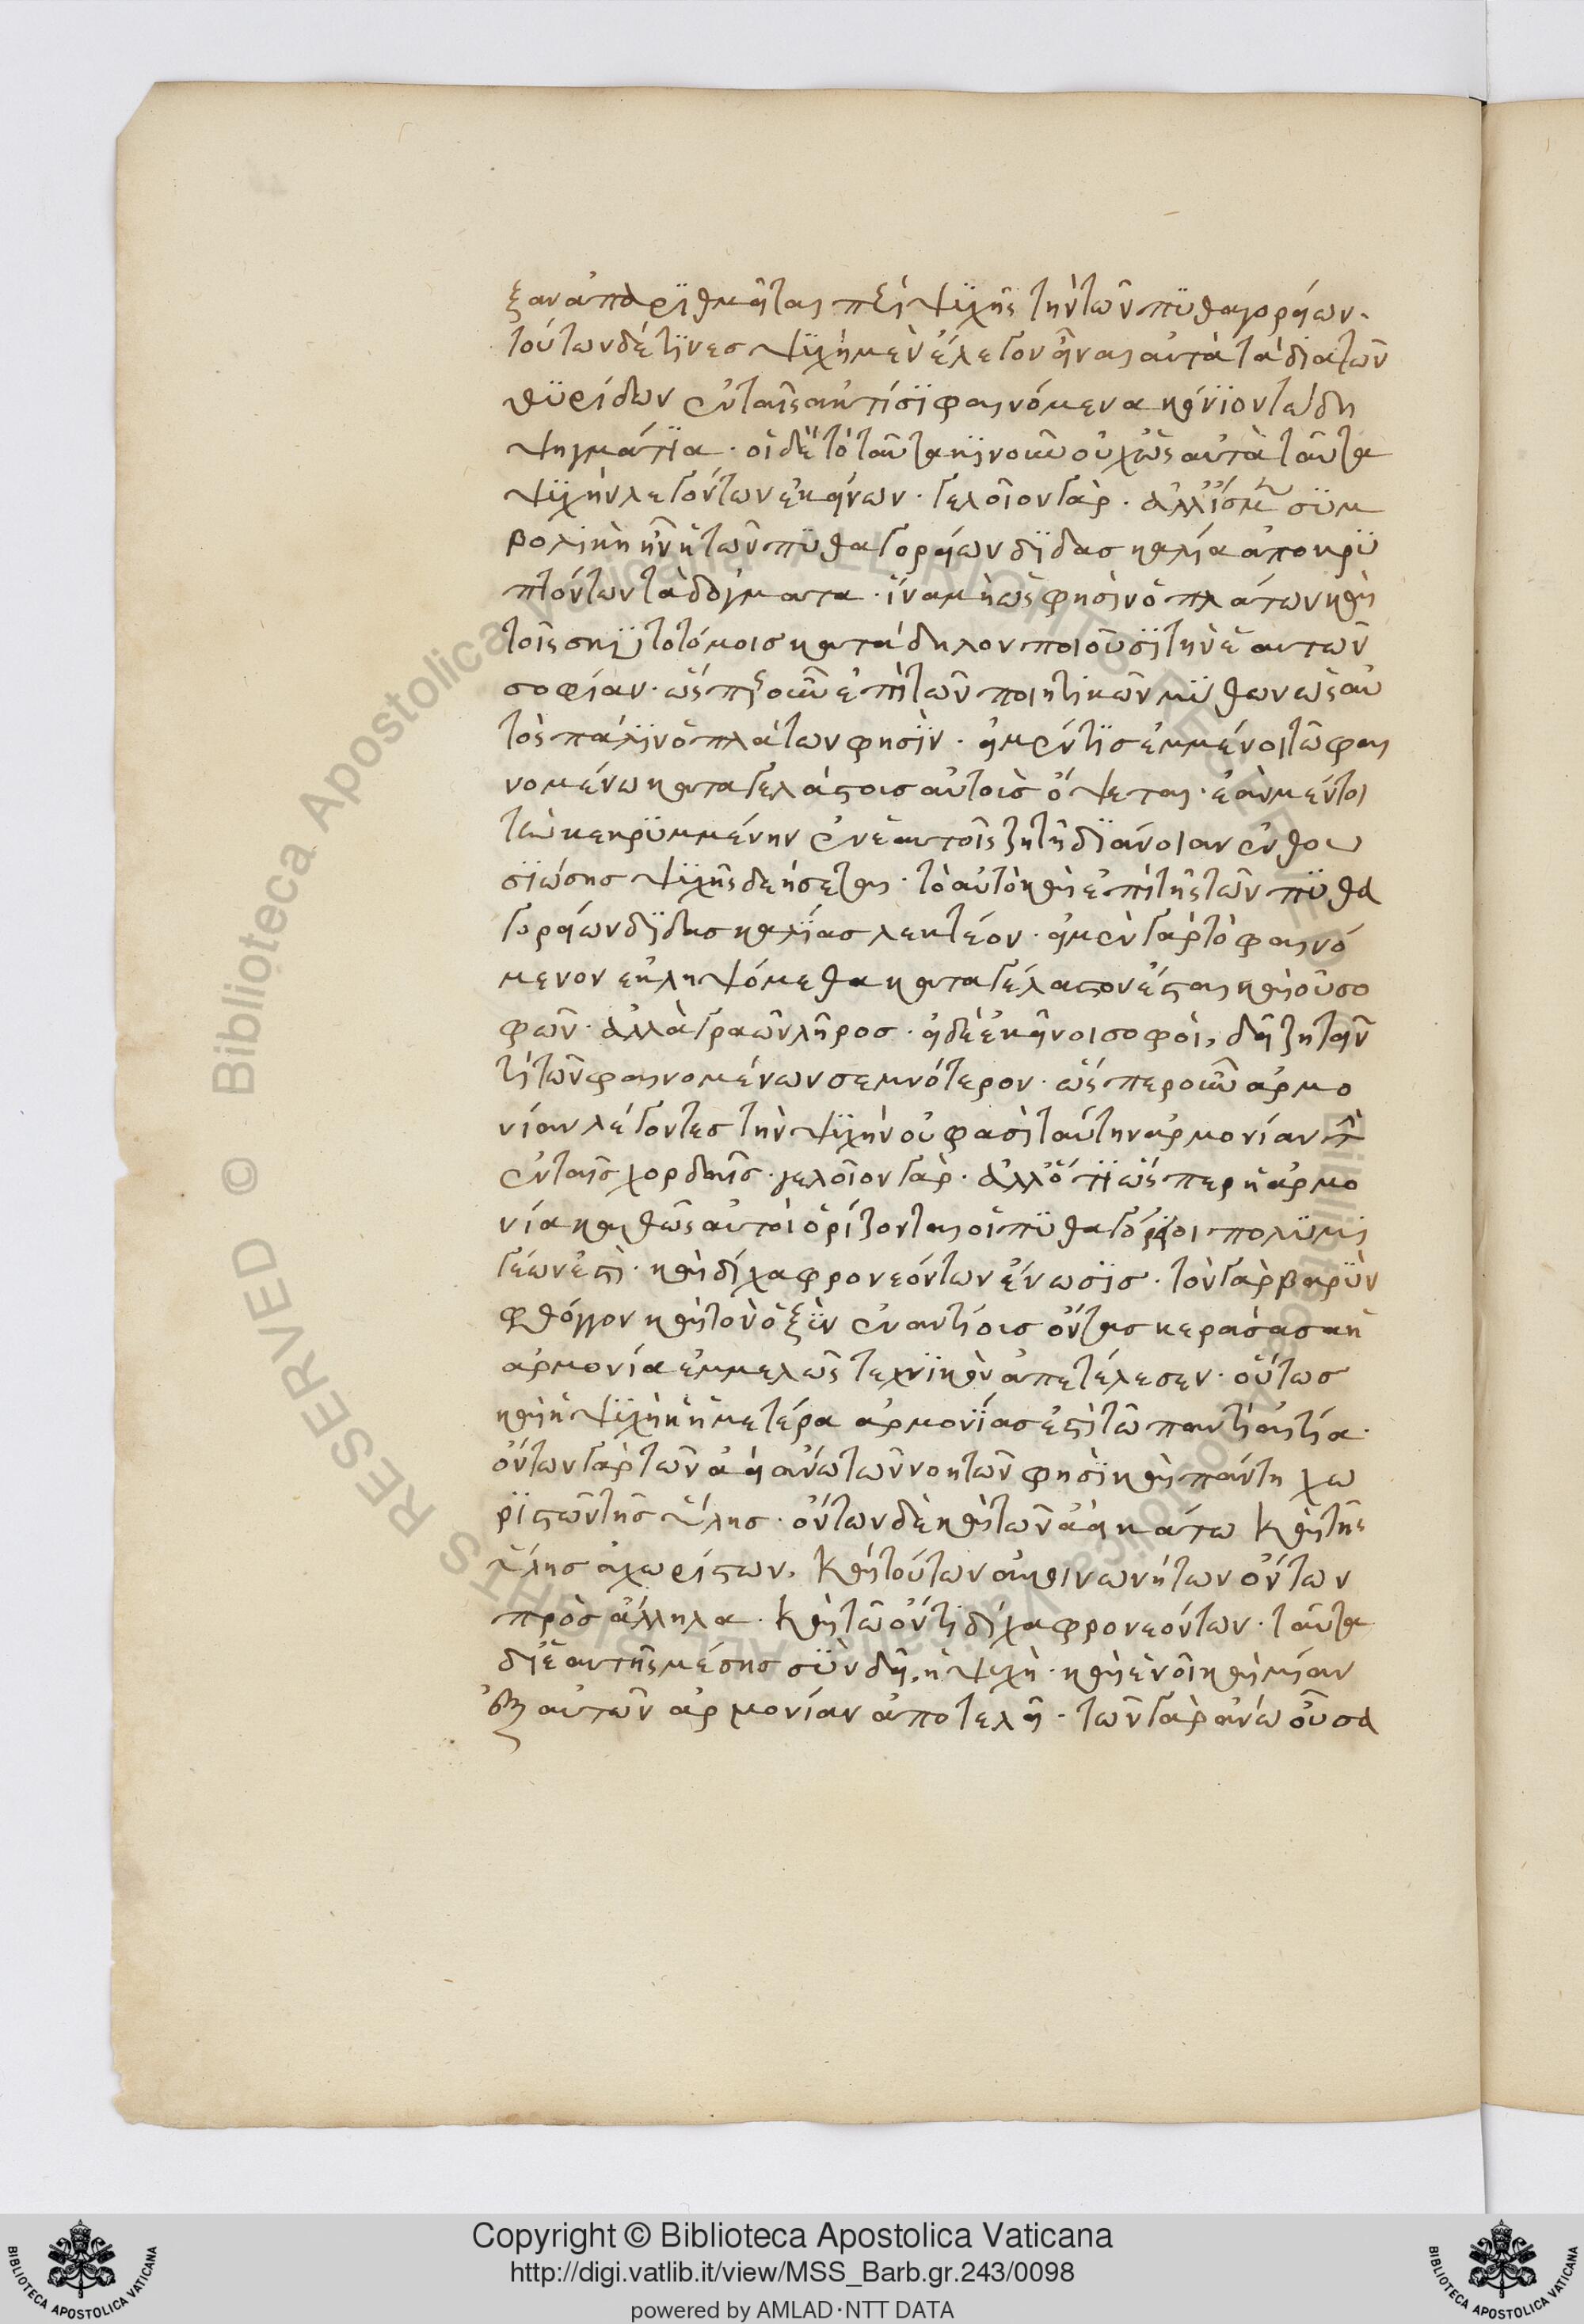 ξαν ἀπαρϊθμεῖται περὶ ψϋχῆς τὴν τῶν πϋθαγορείων.
τούτων δέ τϊνεσ ψϋχὴν μὲν ἔλεγον εἶναι αὐτὰ τὰ διὰ τῶν
θϋρίδων ἐν ταῖς ἀκτίσϊ φαινόμενα κονϊορτώδη
ψηγμάτϊα· οἱ δὲ τὸ ταῦτα κϊνοῦν οὐχ ὡς αὐτὰ ταῦτα
ψϋχὴν λεγόντων ἐκείνων· γελοῖον γάρ· ἀλλ' ἴσμεν σϋμ
βολϊκὴ ἦν ἡ τῶν πϋθαγορείων δϊδασκαλία ἀποκρϋ
πτόντων τὰ δόγματα· ἵνα μὴ ὡς φησὶν ὁ πλάτων καὶ
τοῖς σκϋτοτόμοισ κατάδηλον ποιοῦσϊ τὴν ἑαυτῶν
σοφίαν· ὥσπερ οὖν ἐπὶ τῶν ποιητικῶν μϋθων ὡς αὐ
τὸς πάλϊν ὁ πλάτων φησὶν· εἰ μέν τϊσ ἐμμένοι τῶ φαι
νομένω καταγελάστοισ αὐτοῖσ ὄψεται· ἐὰν μέντοι
τὴν κεκρϋμμένην ἐν ἑαυτοῖς ζητῆ δϊάνοιαν ἐνθου
σϊώσης ψϋχῆς δεήσεται· τὸ αὐτὸ καὶ ἐπὶ τῆς τῶν πϋθα
γορείων δϊδασκαλϊάσ λεκτέον· εἰ μὲν γὰρ τὸ φαινό
μενον ἐκληψόμεθα καταγέλαστον ἔσται καὶ οὐ σο
φῶν· ἀλλὰ γραῶν λῆροσ· εἰ δὲ ἐκεῖνοι σοφοὶ, δεῖ ζητεῖν
τὶ τῶν φαινομένων σεμνότερον· ὥσπερ οὖν ἁρμο
νίαν λέγοντεσ τὴν ψϋχὴν οὔ φασὶ ταύτην ἁρμονίαν τὴν
ἐν ταῖσ χορδαῖσ· γελοῖον γάρ· ἀλλ' ὅτϊ ὥσπερ ἡ ἁρμο
νία καθὼς αὐτοὶ ὁρίζονται οἱ πϋθαγόρειοι πολϋμϊ
γέων ἐστὶ· καὶ δίχα φρονεόντων ἕνωσϊσ· τὸν γὰρ βαρϋν
φθόγγον καὶ τὸν ὀξϋν ἐναντίουσ ὄντασ κεράσασα ἡ
ἁρμονία ἐμμελῶς τεχνϊκὸν ἀπετέλεσεν· οὕτωσ
καὶ ἡ ψϋχὴ ἡ ἡμετέρα ἁρμονϊάσ ἐστὶ τῶ παντὶ αἰτία·
ὄντων γὰρ τῶν ἀεὶ ἄνω τῶν νοητῶν φησὶ καὶ πάντη χω
ρϊστῶν τῆσ ὕλησ· ὄντων δὲ καὶ τῶν ἀεὶ κάτω καὶ τῆς
ὕλησ ἀχωρίστων, καὶ τούτων ἀκοινωνήτων ὄντων
πρὸσ ἄλληλα· καὶ τῶ ὄντι δίχα φρονεόντων· ταῦτα
δι' ἑαυτῆς μέσησ σϋνδεῖ, ἡ ψϋχὴ· καὶ ἑνοῖ καὶ μίαν
ἐξ αὐτῶν ἁρμονίαν ἀποτελεῖ· τῶν γὰρ ἄνω οὖσα